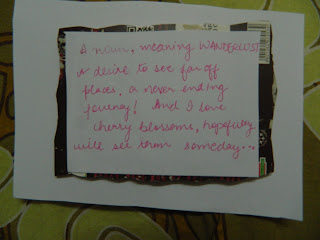 A noun, meaning WANDERLUST
A desire to see far off
places, a never ending
journey! And I love
cherry blossoms, hopefully
will see them someday...